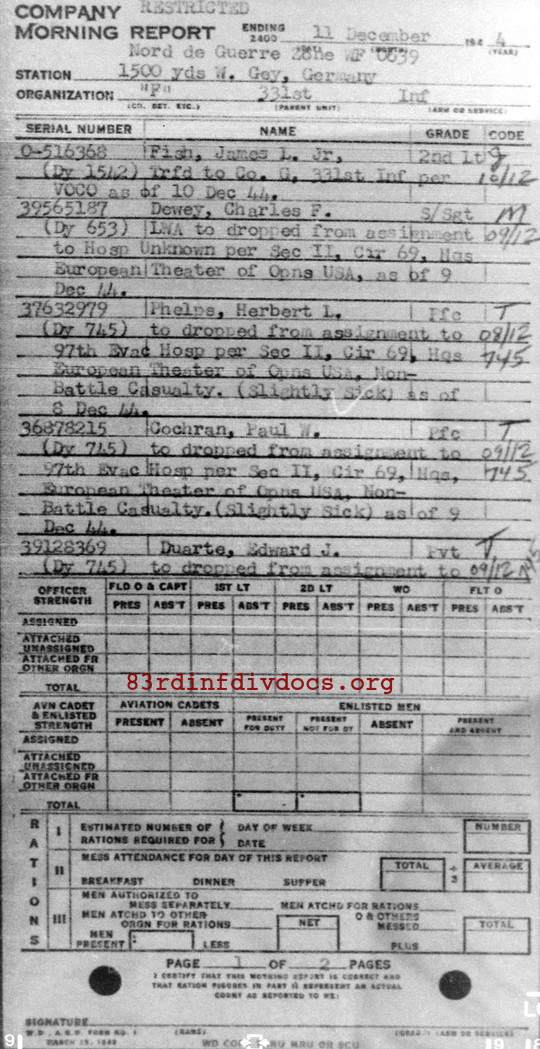 COMPANY RESTRICTED
MORNING REPORT ENDING 2400 11 December 194 4 (YEAR)
Nord de Guerre 28He WF 0639
STATION 1500 yds W. Gey, Germany
ORGANIZATION "F" 331st Inf
(CO. DET. ETC.) (PARENT UNIT) (ARM OR SERVICE)
SERIAL NUMBER NAME GRADE CODE
O-516368 Fish, James L. Jr, 2nd Lt
(Dy 1542) Trfd to Co. G, 331st Inf per 10/12
VOCO as of 10 Dec 44.
39565187 Dewey, Charles F. S/Sgt M
(Dy 653) LWA to dropped from assignment 09/12
to Hosp Unknown per Sec II, Cir 69, Hqs
European Theater of Opns USA, as of 9
Dec 44.
37632979 Phelps, Herbert L. Pfc T
(Dy 745) to dropped from assignment to 08/12
97th Evac Hosp per Sec II, Cir 69, Hqs 745
European Theater of Opns USA, Non-
Battle Casualty. (Slightly Sick) as of
8 Dec 44.
36878215 Cochran, Paul W. Pfc T
(Dy 745) to dropped from assignment to 09/12
97th Evac Hosp per Sec II, Cir 69, Hqs, 745
European Theater of Opns USA, Non-
Battle Casualty. (Slightly Sick) as of 9
Dec 44.
39128369 Duarte, Edward J. Pvt T
(Dy 745) to dropped from assignment to 09/12
OFFICER STRENGTH FLD O & CAPT 1ST LT 2D LT WO FLT O
PRES ABS'T PRES ABS'T PRES ABS'T PRES ABS'T PRES ABS'T
ASSIGNED
ATTACHED UNASSIGNED
ATTACHED FR OTHER ORGN
TOTAL
83rdinfdivdocs.org
AVN CADET & ENLISTED STRENGTH AVIATION CADETS ENLISTED MEN
PRESENT ABSENT PRESENT FOR DUTY PRESENT NOT FOR DY ABSENT PRESENT AND ABSENT
ASSIGNED
ATTACHED UNASSIGNED
ATTACHED FR OTHER ORGN
TOTAL
RATIONS
I ESTIMATED NUMBER OF DAY OF WEEK NUMBER
RATIONS REQUIRED FOR DATE
II MESS ATTENDANCE FOR DAY OF THIS REPORT TOTAL ÷ 3 AVERAGE
BREAKFAST DINNER SUPPER
III MEN AUTHORIZED TO MESS SEPARATELY MEN ATCHD FOR RATIONS
MEN ATCHD TO OTHER ORGN FOR RATIONS NET O & OTHERS MESSED TOTAL
MEN PRESENT LESS PLUS
PAGE 1 OF 2 PAGES
I CERTIFY THAT THIS MORNING REPORT IS CORRECT AND
THAT RATION FIGURES IN PART II REPRESENT AN ACTUAL
COUNT AS REPORTED TO ME:
SIGNATURE
W.D., A.G.O. FORM NO. 1 (NAME) (GRADE) (ARM OR SERVICE)
MARCH 25, 1943